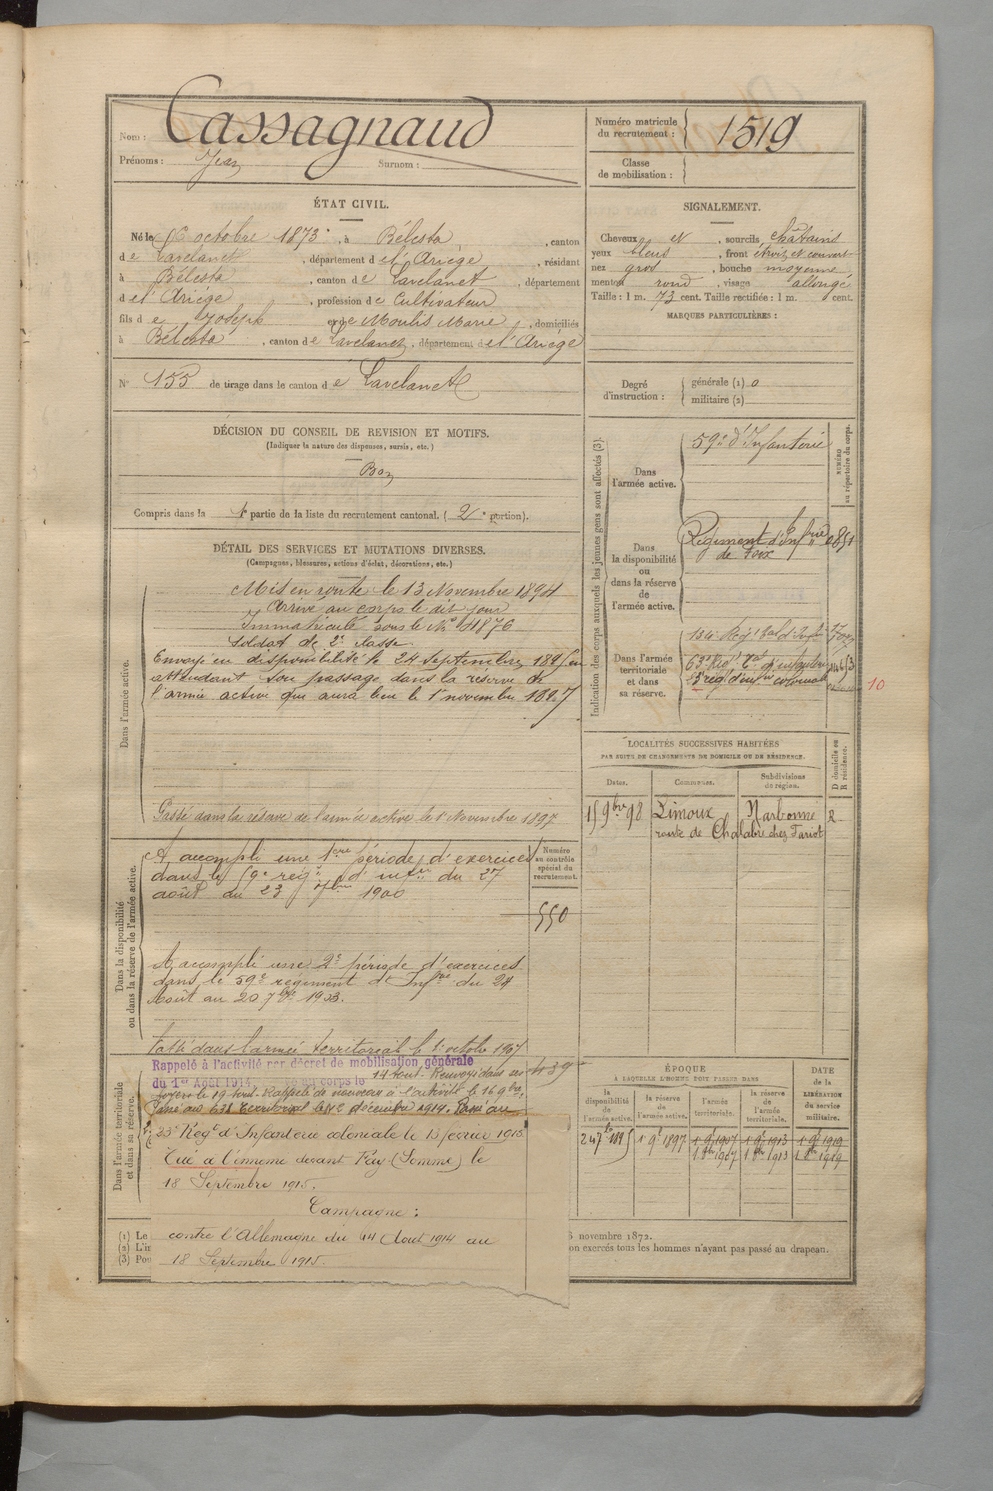 Nom : Cassagnaud
Prénoms : Jean Surnom :
Numéro matricule du recrutement : 1519
Classe de mobilisation :
ÉTAT CIVIL.
Né le 6 octobre 1873, à Bélesta, canton
de Lavelanet, département de l'Ariège, résidant
à Bélesta, canton de Lavelanet, département
de l'Ariège, profession de Cultivateur
fils de Joseph et de Moulis Marie, domiciliés
à Bélesta, canton de Lavelanet, département de l'Ariège
N° 153 de tirage dans le canton de Lavelanet
SIGNALEMENT.
Cheveux et, sourcils châtains
yeux bleus, front étroit et couvert
nez gros, bouche moyenne
menton rond, visage allongé
Taille : 1 m. 73 cent. Taille rectifiée : 1 m. cent.
MARQUES PARTICULIÈRES :
Degré d'instruction : générale (1) 0
militaire (2)
DÉCISION DU CONSEIL DE REVISION ET MOTIFS.
(Indiquer la nature des dispenses, sursis, etc.)
Bon
Compris dans la 1e partie de la liste du recrutement cantonal. (2e portion).
DÉTAIL DES SERVICES ET MUTATIONS DIVERSES.
(Campagnes, blessures, actions d'éclat, décorations, etc.)
Dans l'armée active.
Mis en route le 13 Novembre 1894
Arrivé au corps le dit jour
Immatriculé sous le N°
Soldat de 2e classe
Envoyé en disponibilité le 24 septembre 1895 en
attendant son passage dans la réserve de
l'armée active qui aura lieu le 1er novembre 1897
Passé dans la réserve de l'armée active le 1er Novembre 1897
Dans la disponibilité
ou dans la réserve de l'armée active.
A accompli une 1ère période d'exercices
dans le 59e régt d'infrie du 27
août au 23 7bre 1900
Numéro au contrôle spécial du recrutement.
550
A accompli une 2e période d'exercices
dans le 59e régiment d'Infrie du 24
Août au 20 7bre 1903.
Passé dans l'armée territoriale le 1er octobre 1907
Dans l'armée territoriale
et dans sa réserve.
Rappelé à l'activité par décret de mobilisation générale
du 1er Août 1914. au corps le 14 août. Renvoyé dans ses
foyers le 19 août. Rappelé de nouveau à l'activité le 16 9bre.
Passé au 63e Territorial le 12 décembre 1914. Passé au
33e Régt d'Infanterie coloniale le 13 février 1915
Tué à l'ennemi devant Fay (Somme) le
18 Septembre 1915.
Campagne :
contre l'Allemagne du 14 Août 1914 au
18 Septembre 1915.
Indication des corps auxquels les jeunes gens sont affectés (3).
NUMÉRO au répertoire du corps.
Dans l'armée active.
59e d'Infanterie
Dans la disponibilité ou dans la réserve de l'armée active.
Régiment d'Infrie
de Foix
0851
Dans l'armée territoriale et dans sa réserve.
134e Régt Tal d'Infie
63e Régt Tal d'infanterie
régt d'infrie coloniale
10
LOCALITÉS SUCCESSIVES HABITÉES
PAR SUITE DE CHANGEMENTS DE DOMICILE OU DE RÉSIDENCE.
Dates. Communes. Subdivisions de région. D domicile ou R résidence.
15 9bre 98 Limoux Narbonne R
route de Chalabre chez Tariol
ÉPOQUE
À LAQUELLE L'HOMME DOIT PASSER DANS
la disponibilité de l'armée active. la réserve de l'armée active. l'armée territoriale. la réserve de l'armée territoriale. DATE de la LIBÉRATION du service militaire.
24 7bre 1895 1 9e 1897 1 9e 1907 1 9e 1913 1 9e 1919
1 8bre 1907 1 8bre 1913 1 8bre 1919
(1) Le
(2) L'in
(3) Pou
novembre 1872.
on exercés tous les hommes n'ayant pas passé au drapeau.